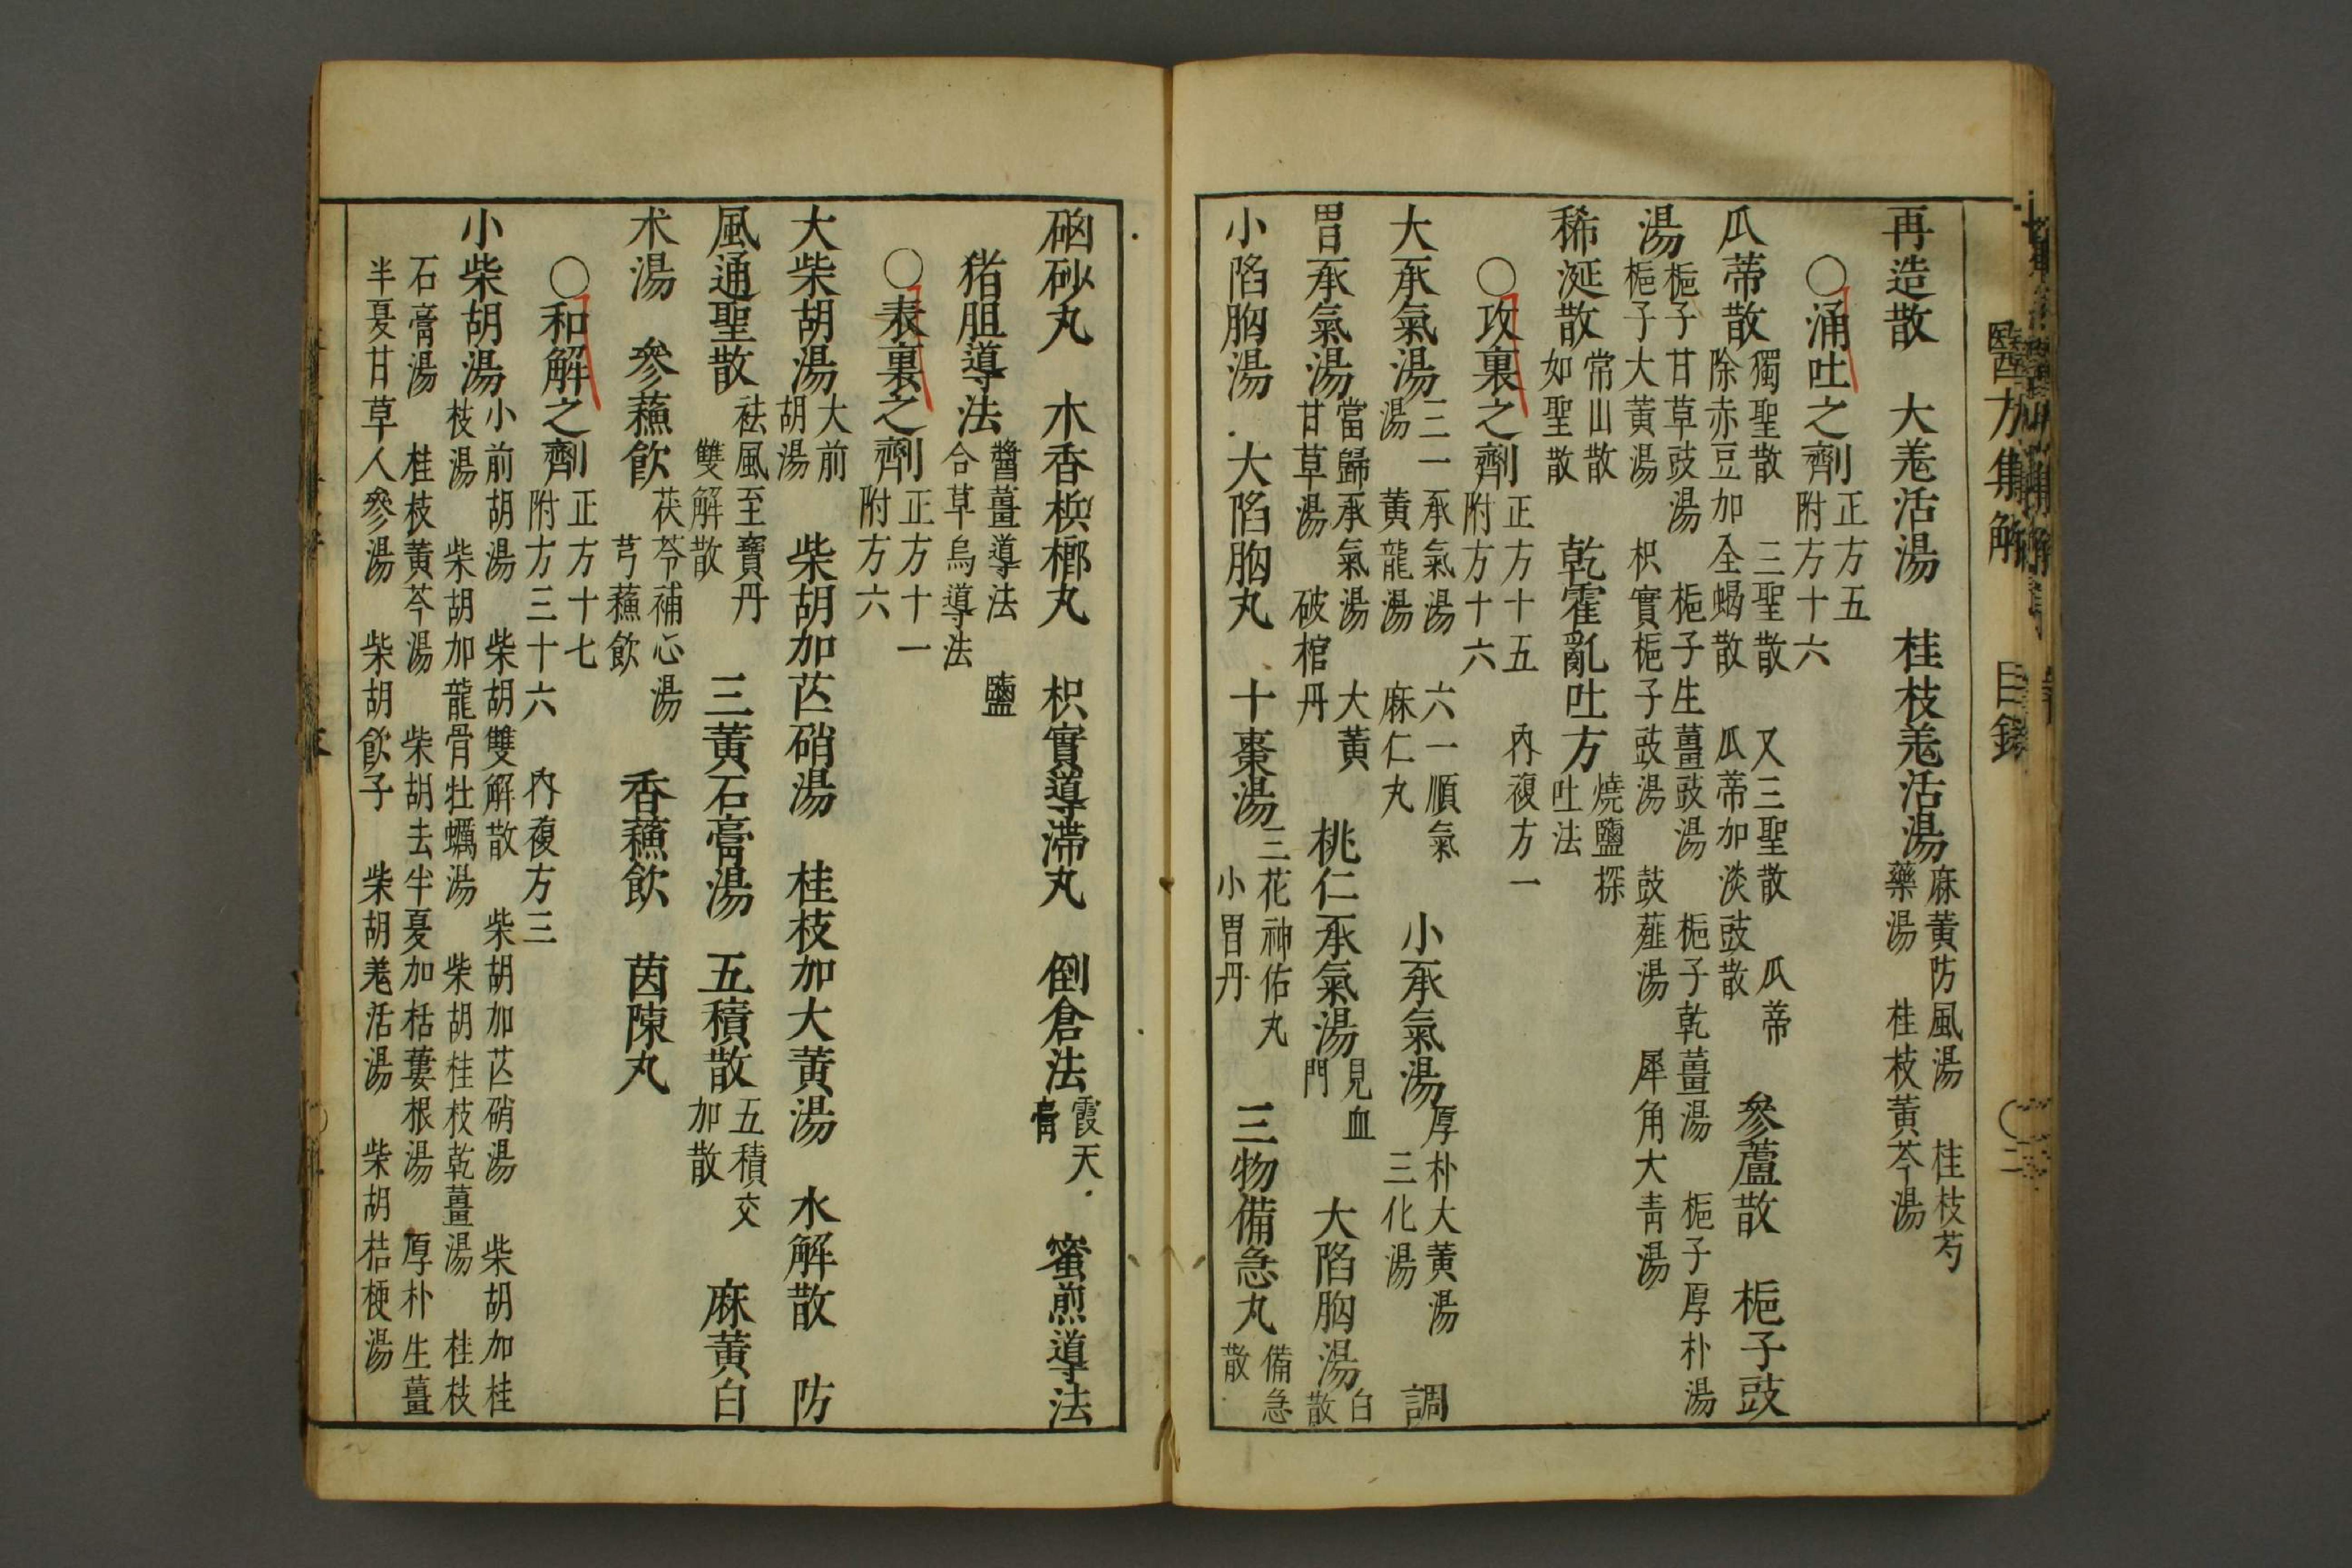 醫方集解 目錄 〇二
再造散 大羗活湯 桂枝羗活湯 麻黃防風湯 桂枝芍
藥湯 桂枝黃芩湯
〇涌吐之劑 正方五
附方十六
瓜蒂散 獨聖散 三聖散 又三聖散 瓜蒂 參蘆散 梔子豉
除赤豆加全蝎散 瓜蒂加淡豉散
湯 梔子甘草豉湯 梔子生薑豉湯 梔子乾薑湯 梔子厚朴湯
梔子大黃湯 枳實梔子豉湯 豉薤湯 犀角大青湯
稀涎散 常山散
如聖散 乾霍亂吐方 燒鹽探
吐法
〇攻裏之劑 正方十五 內複方一
附方十六
大承氣湯 三一承氣湯 六一順氣
湯 黃龍湯 麻仁丸 小承氣湯 厚朴大黃湯
三化湯 調
胃承氣湯 當歸承氣湯 大黃
甘草湯 破棺丹 桃仁承氣湯 見血
門 大陷胸湯 白
散
小陷胸湯 大陷胸丸 十棗湯 三花神佑丸
小胃丹 三物備急丸 備急
散
硇砂丸 木香檳榔丸 枳實導滯丸 倒倉法 霞天
膏 蜜煎導法
猪胆導法 醬薑導法 鹽
合草烏導法
〇表裏之劑 正方十一
附方六
大柴胡湯 大前
胡湯 柴胡加芒硝湯 桂枝加大黃湯 水解散 防
風通聖散 祛風至寶丹
雙解散 三黃石膏湯 五積散 五積交
加散 麻黃白
朮湯 參蘇飲 茯苓補心湯
芎蘇飲 香蘇飲 茵陳丸
〇和解之劑 正方十七 內複方三
附方三十六
小柴胡湯 小前胡湯 柴胡雙解散 柴胡加芒硝湯 柴胡加桂
枝湯 柴胡加龍骨牡蠣湯 柴胡桂枝乾薑湯 桂枝
石膏湯 桂枝黃芩湯 柴胡去半夏加栝蔞根湯 厚朴生薑
半夏甘草人參湯 柴胡飲子 柴胡羗活湯 柴胡桔梗湯